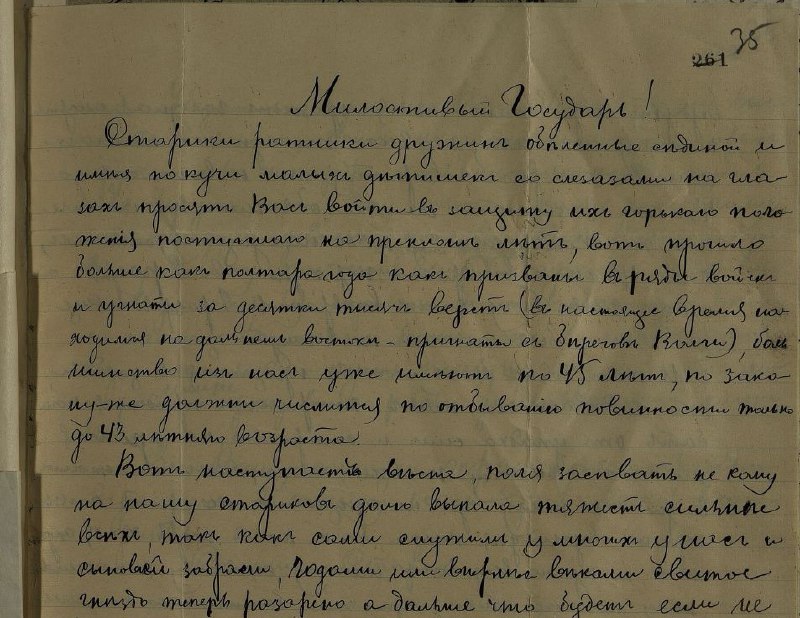 35
261
Милостивый Государь!
Старики ратники дружинъ обѣленные сѣдиной и
имѣя по кучи малыхъ дѣтишекъ со слезазами на гла-
захъ просятъ Васъ войти въ защиту ихъ горькаго поло
женія поступшаго на преклонъ лѣтъ, вотъ прошло
больше какъ полтара года какъ призваны въ ряды войскъ
и угнати за десятки тысячъ верстъ (въ настоящее время на-
ходимся на дальнемъ востоки - пригнаты съ бѣреговъ Волги), боль
шинство изъ насъ уже имѣютъ по 45 лѣтъ, по зако-
ну-же должны числится по отбыванію повинности только
до 43 лѣтняго возраста.
Вотъ наступаетъ весна, поля засѣвать не кому
на нашу стариковъ долю выпала тяжесть сильнѣе
всѣхъ, такъ какъ сами служили у многихъ у насъ и
сыновей забрали, годами или вѣрнѣе вѣками свитое
гнѣздо теперь разарено а дальше что будетъ если не